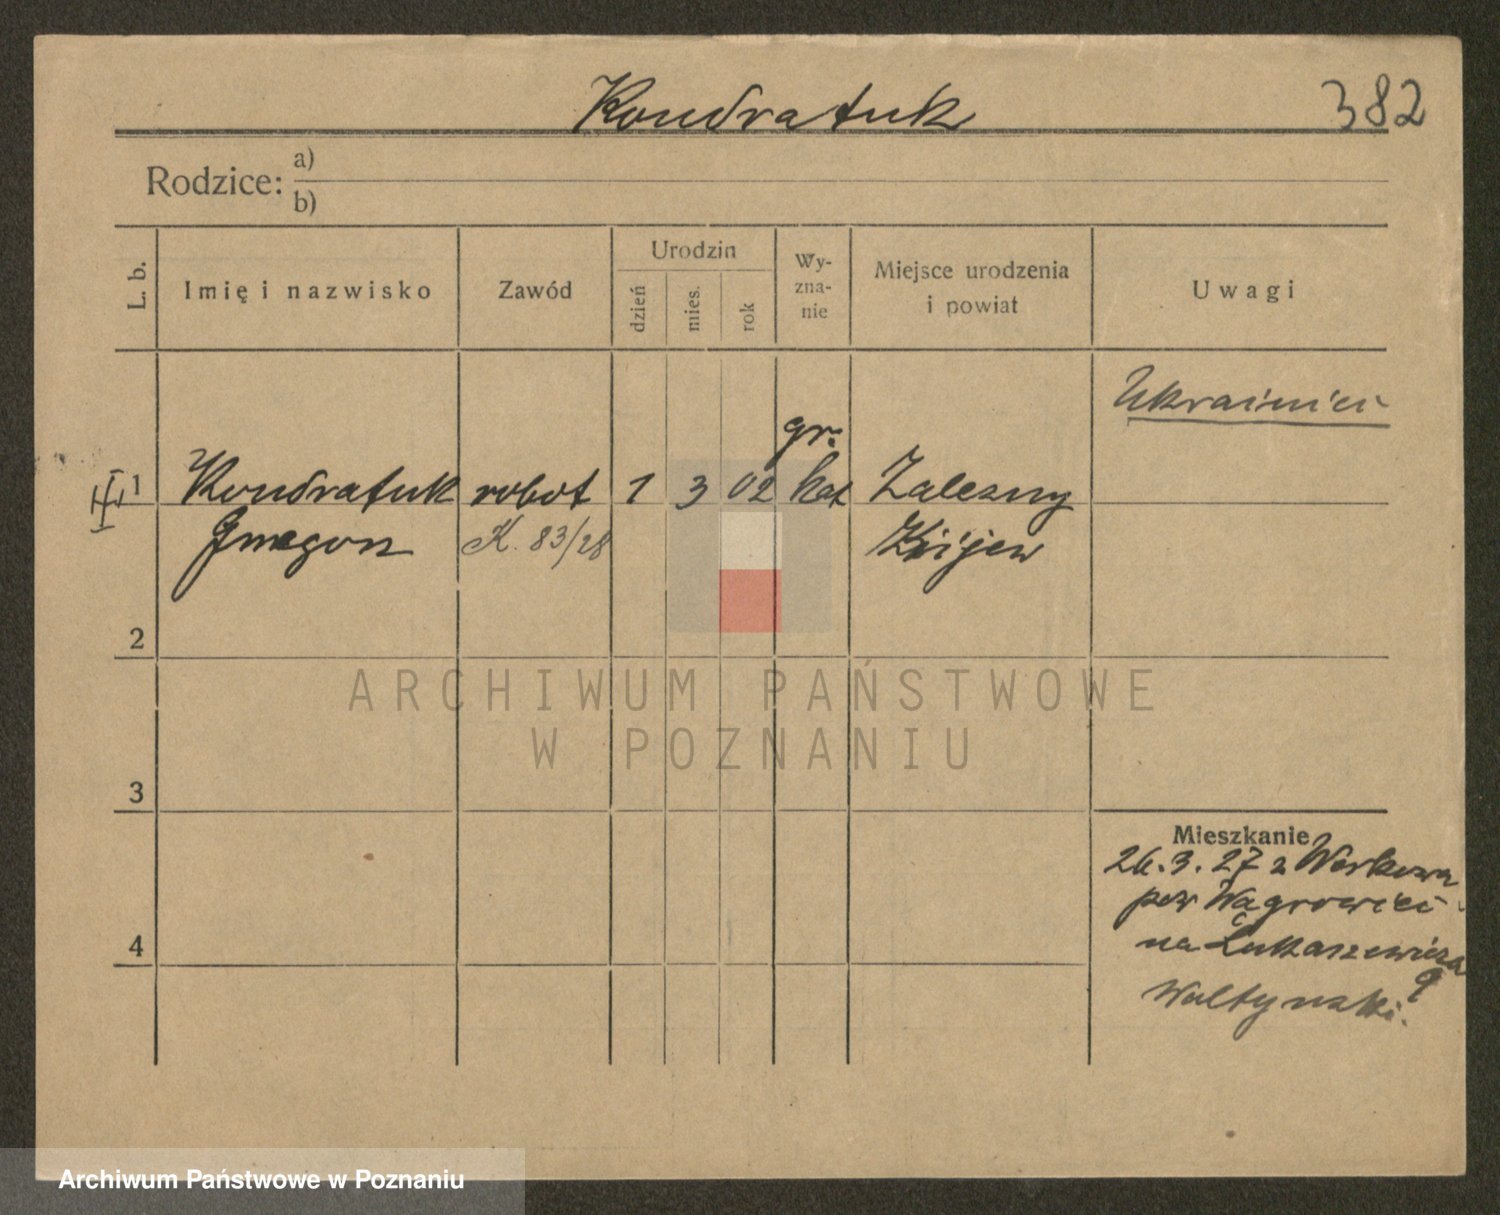 Kondratuk
382
Rodzice: a)
b)
L. b.
Imię i nazwisko
Zawód
Urodzin
dzień
mies.
rok
Wy-
zna-
nie
Miejsce urodzenia
i powiat
Uwagi
Ukrainiec
gr.
III 1 Kondratuk robot 1 3 02 kat Zalezny
K. 83/28 Kijew
2
ARCHIWUM PAŃSTWOWE
W POZNANIU
3
Mieszkanie
26.3.27 z
pow Wągrowiec
na Łukaszewicza
9
4
Archiwum Państwowe w Poznaniu